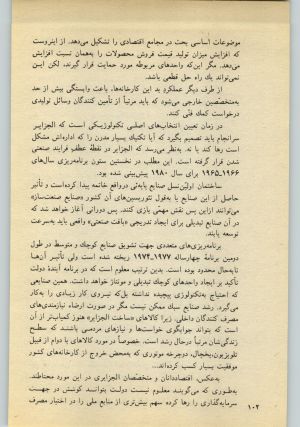 موضوعات اساسی بحث در مجامع اقتصادی را تشکیل می‌دهد. از اینروست
که افزایش میزان تولید قیمت فروش محصولات را به‌همان نسبت افزایش
می‌دهد. مگر این‌که واحدهای مربوطه مورد حمایت قرار گیرند، لکن این
نمی‌تواند یك راه حل قطعی باشد.
از طرف دیگر عملکرد بد این کارخانه‌ها، باعث وابستگی بیش از حد
به‌متخصصین خارجی می‌شود که باید مرتباً از تأمین کنندگان وسائل تولیدی
درخواست کمك فنّی کنند.
در زمان تعیین انتخاب‌های اصلی تکنولوژیکی است که الجزایر
سرانجام باید تصمیم بگیرد که آیا تکنیك بسیار مدرن را که اداره‌اش مشکل
است رها کند یا نه. به‌نظر می‌رسد که الجزایر در نقطهٔ عطف فرایند صنعتی
شدن قرار گرفته است. این مطلب در نخستین ستون برنامه‌ریزی سال‌های
۱۹۶۶-۱۹۶۵ برای سال ۱۹۸۰ پیش‌بینی شده بود.
ساختمان اولین‌نسل صنایع پایه‌ئی درواقع خاتمه پیدا کرده‌است و تأثیر
حاصل از این صنایع یا به‌قول تئوریسین‌های آن کشور «صنایع صنعت‌ساز»
می‌توانند ازاین پس نقش مهمی بازی کنند. پس دورانی آغاز خواهد شد که
در آن صنایع تبدیلی برای ایجاد تدریجی «بافت صنعتی» واقعی باید به‌سرعت
توسعه یابند.
برنامه‌ریزی‌های متعددی جهت تشویق صنایع کوچك و متوسط در طول
دومین برنامهٔ چهارساله ۱۹۷۷ـ۱۹۷۴ ریخته شده است ولی تأثیر آن‌ها
تابه‌حال محدود بوده است. بدین ترتیب معلوم است که در برنامه آیندهٔ دولت
تأکید بر ایجاد واحدهای کوچك تبدیلی و مونتاژ خواهد داشت. همین صنایعی
که احتیاج به‌تکنولوژی پیچیده نداشته بل‌که نیروی کار زیادی را به‌کار
می‌گیرد. رشد صنایع سبك ممکن نیست مگر در صورت ارضاء نیازمندی‌های
مصرف کنندگان داخلی. زیرا کالاهای «ساخت الجزایر» هنوز کمیاب‌تر از آن
است که بتواند جوابگوی خواست‌ها و نیازهای مردمی باشند که سطح
زندگی‌شان مرتباً درحال رشد است. خصوصاً در مورد کالاهای با دوام از قبیل
تلویزیون،یخچال، دوچرخه موتوری که به‌محض خروج از کارخانه‌های کشور
موفقیت بسیار کسب کرده‌اند...
به‌عکس، اقتصاددانان و متخصّصان الجزایری در این مورد محتاطند.
به‌طوری که می‌گویند معلوم نیست دولت بتواند کوشش در جهت
سرمایه‌گذاری را رها کرده سهم بیش‌تری از منابع ملی را در اختیار مصرف
۱۰۲